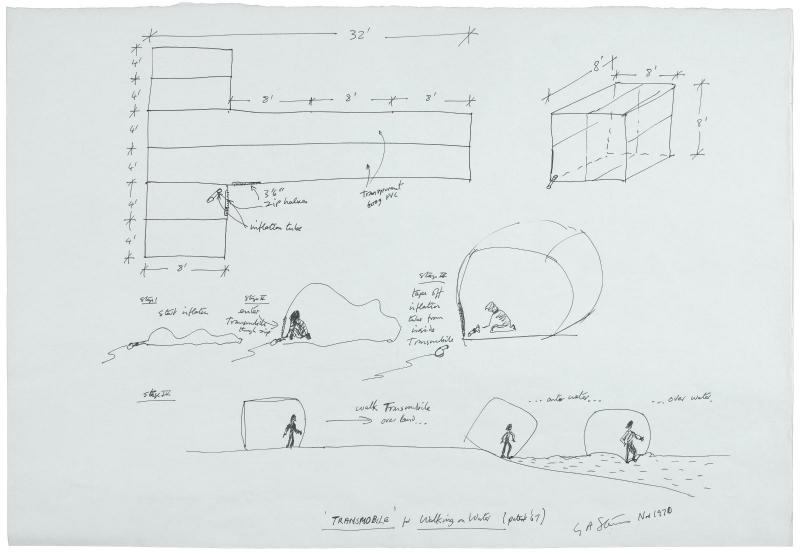 32'
8'
8'
4'
4'
8'
8'
8'
8'
4'
4'
3'6"
zip halves
Transparent
600g PVC
4'
inflation tube
4'
8'
Stage I
start inflation
Stage II
enter
Transmobile
through zip
Stage III
tape off
inflation
tube from
inside
Transmobile
Stage IV
walk Transmobile
over land...
...onto water...
...over water.
'TRANSMOBILE' for Walking on Water (patent '67)
Nov 1970